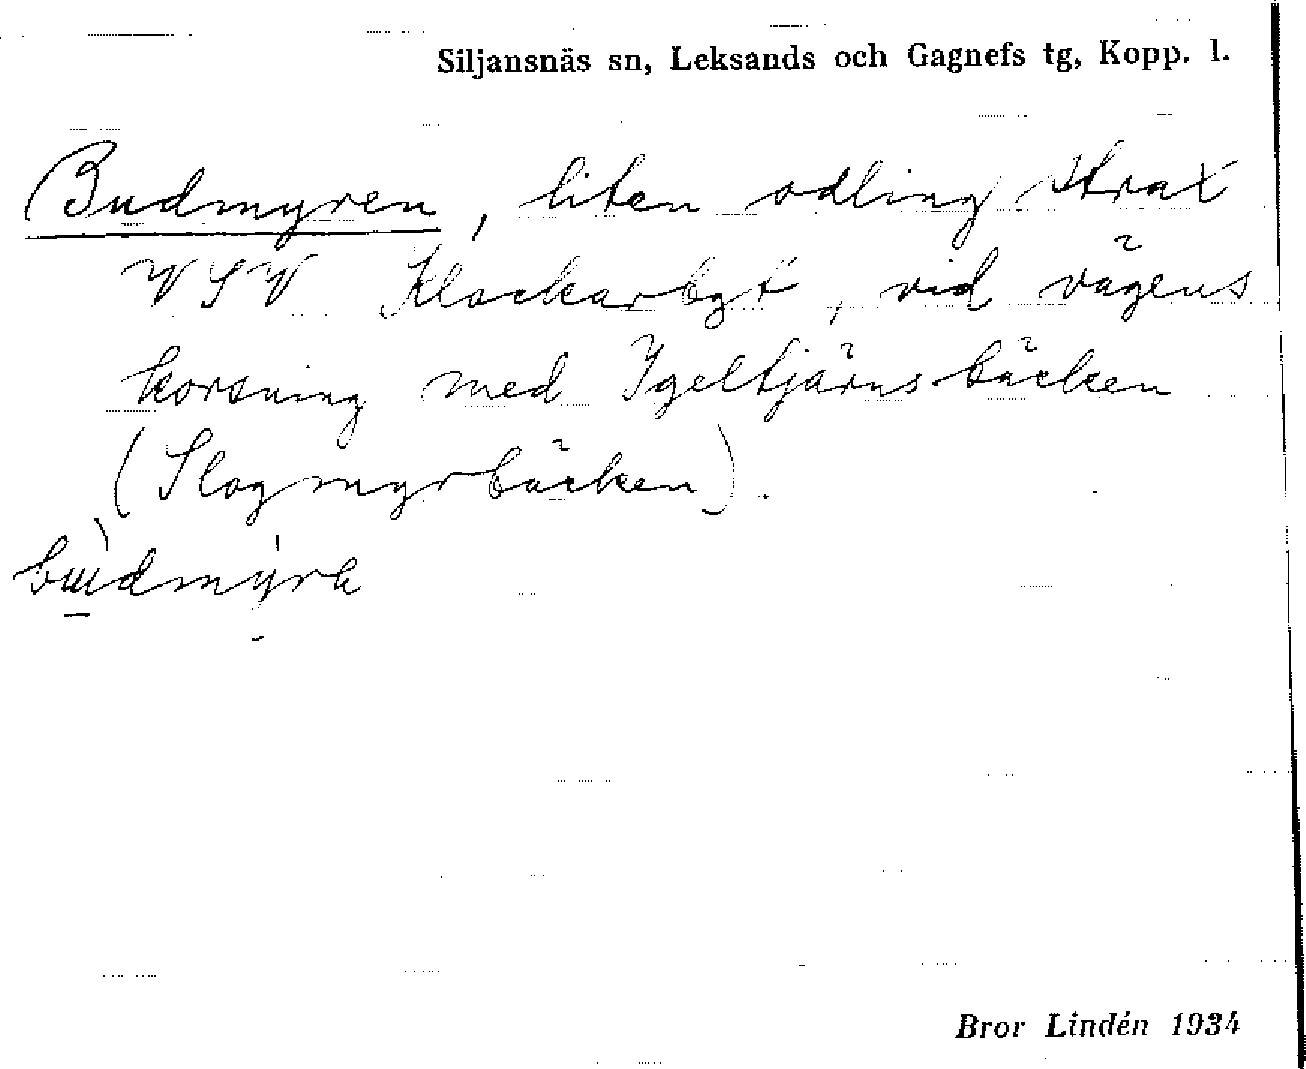 Siljansnäs sn, Leksands och Gagnefs tg, Kopp. l.
Budmyren, liten odling strax
VSV Klockarbgt, vid vägens
korsning med Igeltjärnsbäcken
(Slogmyrbäcken).
Bror Lindén 1934